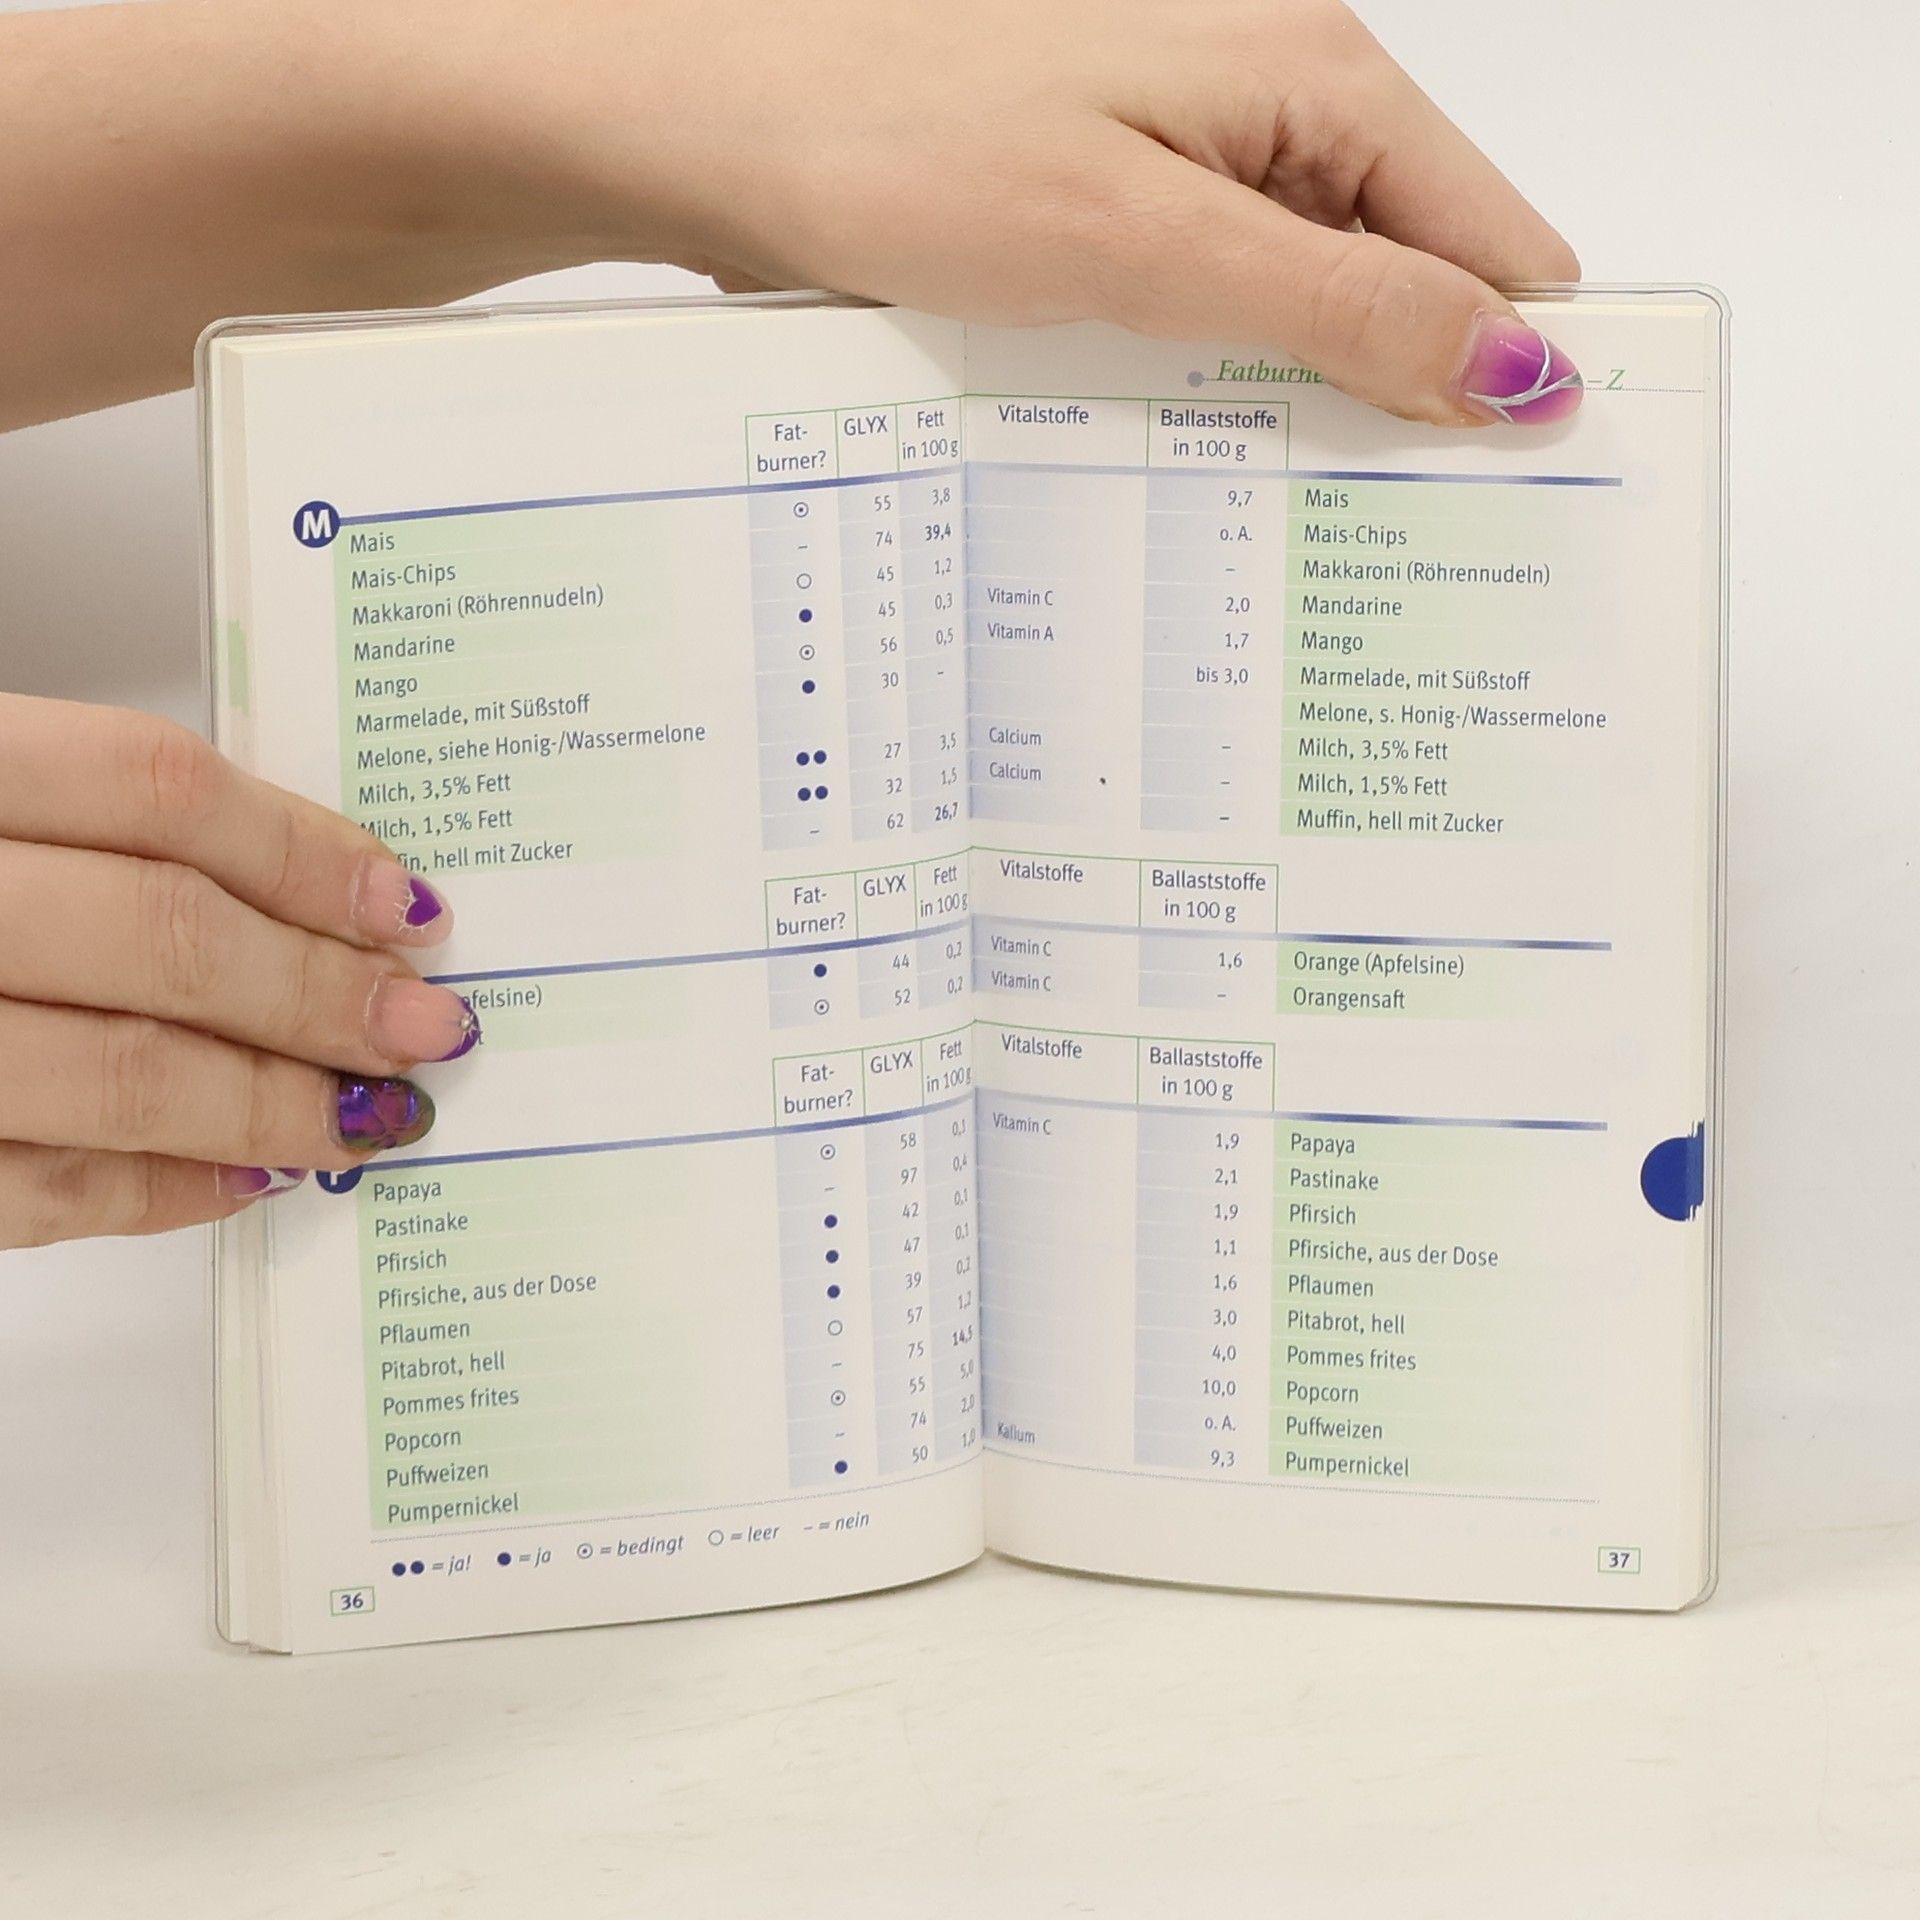 Fat-
burner?
GLYX
Fett
in 100 g
M
Mais 55 3,8
Mais-Chips – 74 39,4
Makkaroni (Röhrennudeln) 45 1,2
Mandarine 45 0,3
Mango 56 0,5
Marmelade, mit Süßstoff 30 –
Melone, siehe Honig-/Wassermelone
Milch, 3,5% Fett 27 3,5
Milch, 1,5% Fett 32 1,5
hell mit Zucker – 62 26,7
Fat-
burner?
GLYX
Fett
in 100 g
44 0,2
52 0,2
Fat-
burner?
GLYX
Fett
in 100 g
Papaya 58 0,1
Pastinake – 97 0,4
Pfirsich 42 0,1
Pfirsiche, aus der Dose 47 0,1
Pflaumen 39 0,2
Pitabrot, hell 57 1,2
Pommes frites – 75 14,5
Popcorn 55 5,0
Puffweizen – 74 2,0
Pumpernickel 50 1,0
●● = ja! ● = ja ⊙ = bedingt ○ = leer – = nein
36
– Z
Vitalstoffe
Ballaststoffe
in 100 g
9,7 Mais
o. A. Mais-Chips
– Makkaroni (Röhrennudeln)
Vitamin C 2,0 Mandarine
Vitamin A 1,7 Mango
bis 3,0 Marmelade, mit Süßstoff
Melone, s. Honig-/Wassermelone
Calcium – Milch, 3,5% Fett
Calcium – Milch, 1,5% Fett
– Muffin, hell mit Zucker
Vitalstoffe
Ballaststoffe
in 100 g
Vitamin C 1,6 Orange (Apfelsine)
Vitamin C – Orangensaft
Vitalstoffe
Ballaststoffe
in 100 g
Vitamin C 1,9 Papaya
2,1 Pastinake
1,9 Pfirsich
1,1 Pfirsiche, aus der Dose
1,6 Pflaumen
3,0 Pitabrot, hell
4,0 Pommes frites
10,0 Popcorn
o. A. Puffweizen
Kalium 9,3 Pumpernickel
37